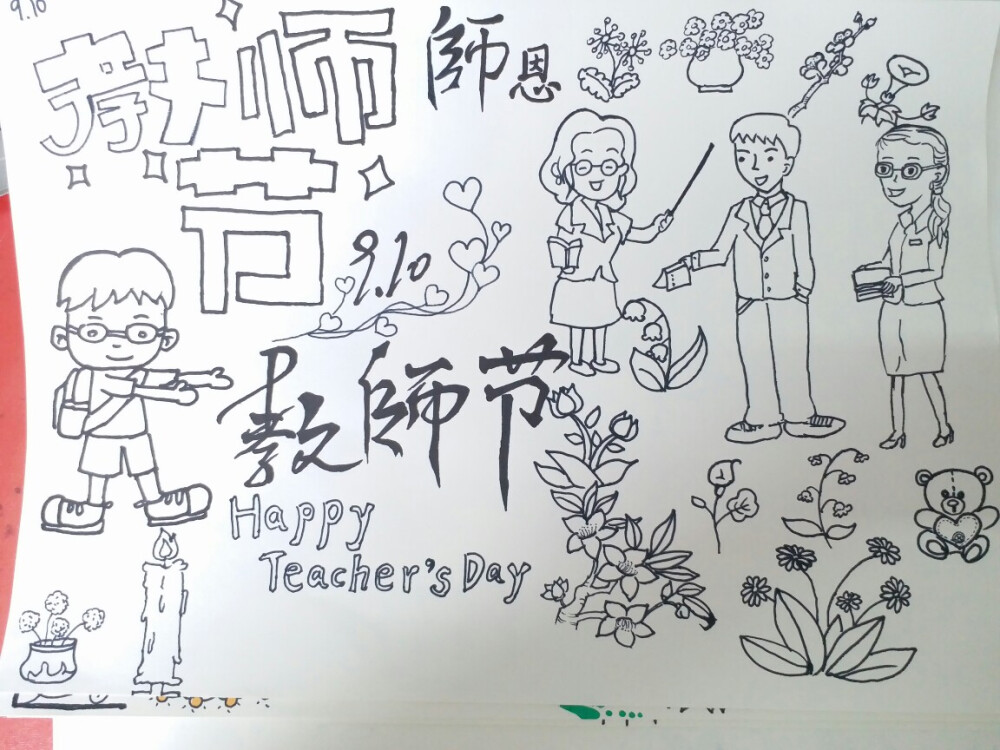 9.10
教师
節恩
节
9.10
教師节
Happy
Teacher's Day